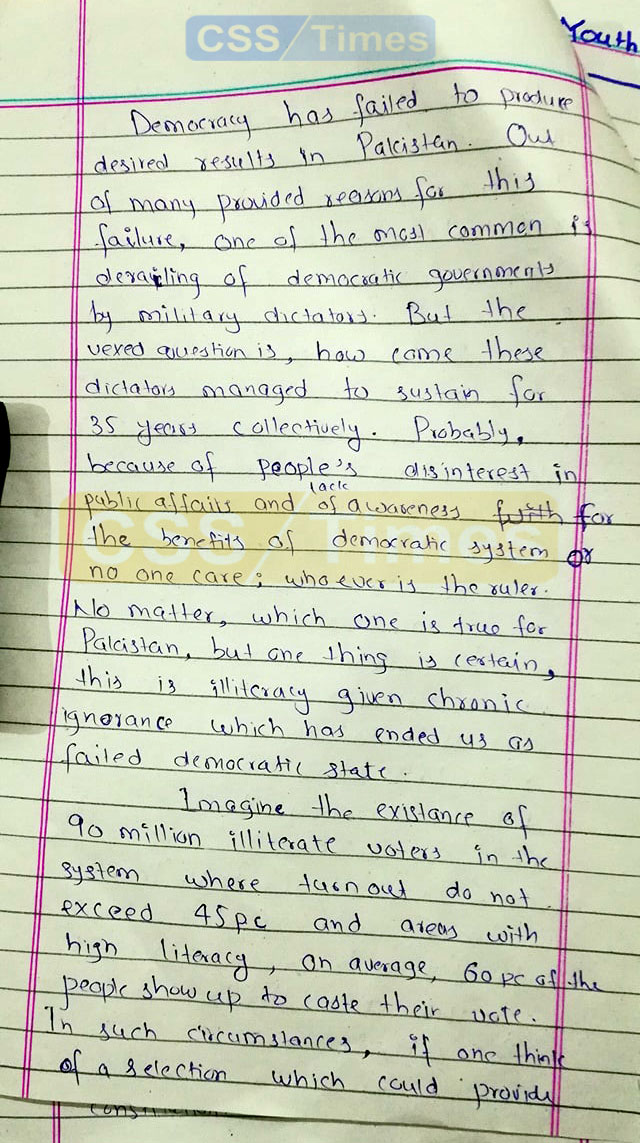 CSS/Times
Youth
Democracy has failed to produce
desired results in Pakistan. Out
of many provided reasons for this
failure, one of the most common is
derailing of democratic governments
by military dictators. But the
vexed question is, how come these
dictators managed to sustain for
35 years collectively. Probably,
because of people's disinterest in
lack
public affairs and of awareness for
the benefits of democratic system or
no one care; whoever is the ruler.
No matter, which one is true for
Pakistan, but one thing is certain,
this is illiteracy given chronic
ignorance which has ended us as
failed democratic state.
Imagine the existance of
90 million illiterate voters in the
system where turn out do not
exceed 45pc and areas with
high literacy, on average, 60 pc of the
people show up to caste their vote.
In such circumstances, if one think
of a selection which could provide
CSS/Times